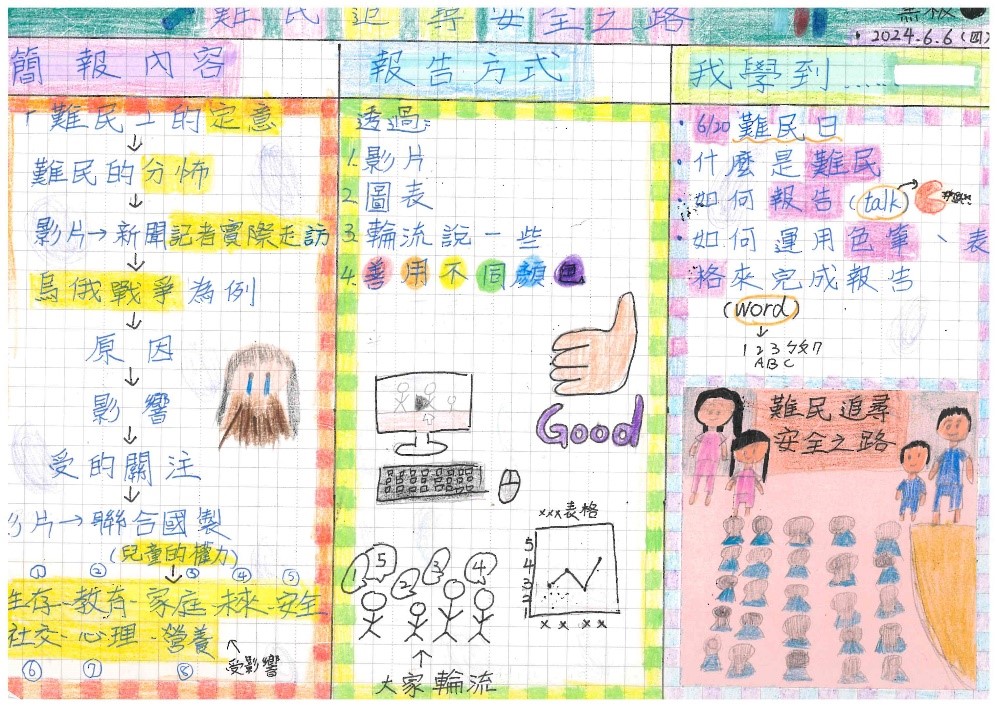 難民追尋安全之路
2024.6.6(四)
簡報內容
「難民」的定意
↓
難民的分怖
↓
影片→新聞記者實際走訪
↓
烏俄戰爭為例
↓
原因
↓
影響
↓
受的關注
↓
影片→聯合國製
(兒童的權力)
① ② ↓ ③ ④ ⑤
生存、教育、家庭、未來、安全
社交、心理、營養
⑥ ⑦ ⑧ 受影響
報告方式
透過:
1.影片
2.圖表
3.輪流說一些
4.善用不同顏色
Good
xxx表格
5
4
3
2
1
x x x x
1 5 2 3 4
大家輪流
我學到......
• 6/20難民日
• 什麼是難民
• 如何報告(talk)
• 如何運用色筆、表
格來完成報告
(word)
↓
1 2 3 ㄅㄆㄇ
A B C
難民追尋
安全之路